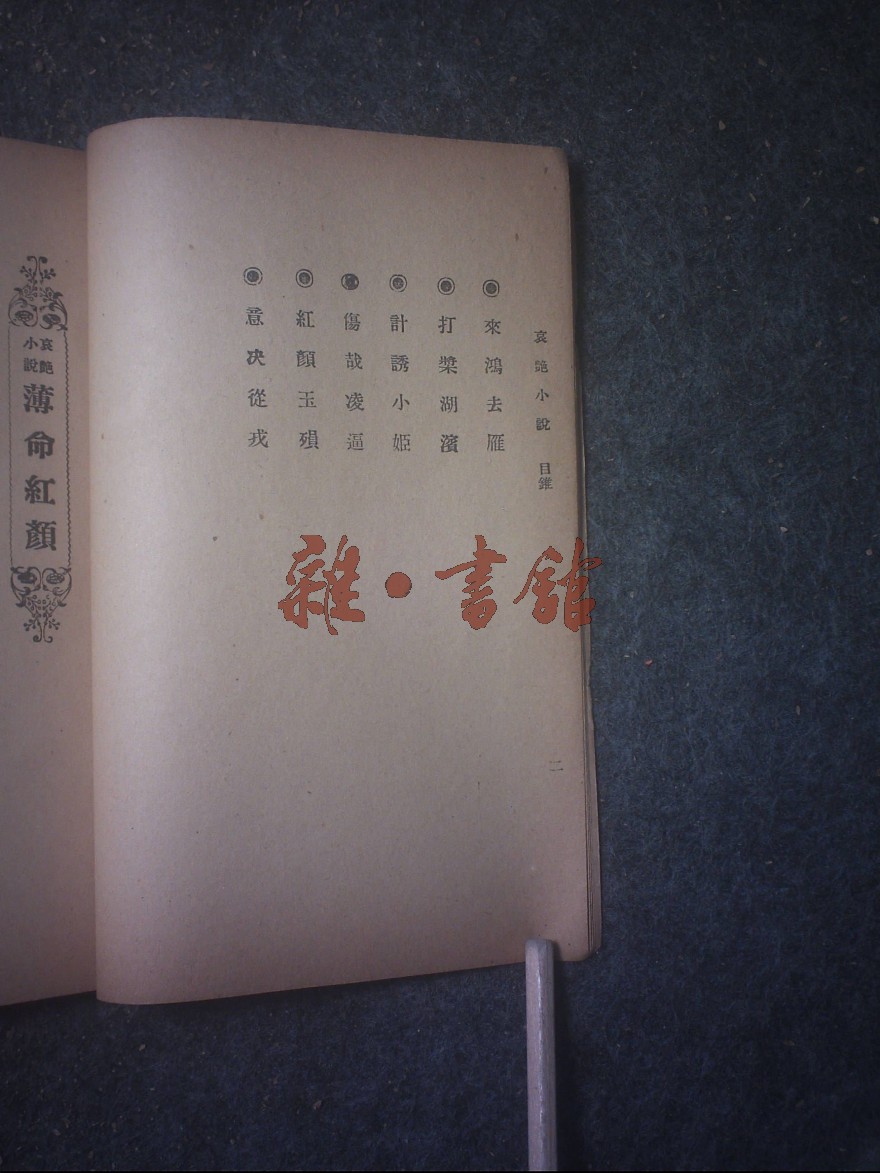 哀艶小說 目錐
來鴻去雁
打槳湖濱
計誘小姬
傷哉凌逼
紅顏玉殞
意决從戎
二
哀艶小說
薄命紅顏
雜•書館